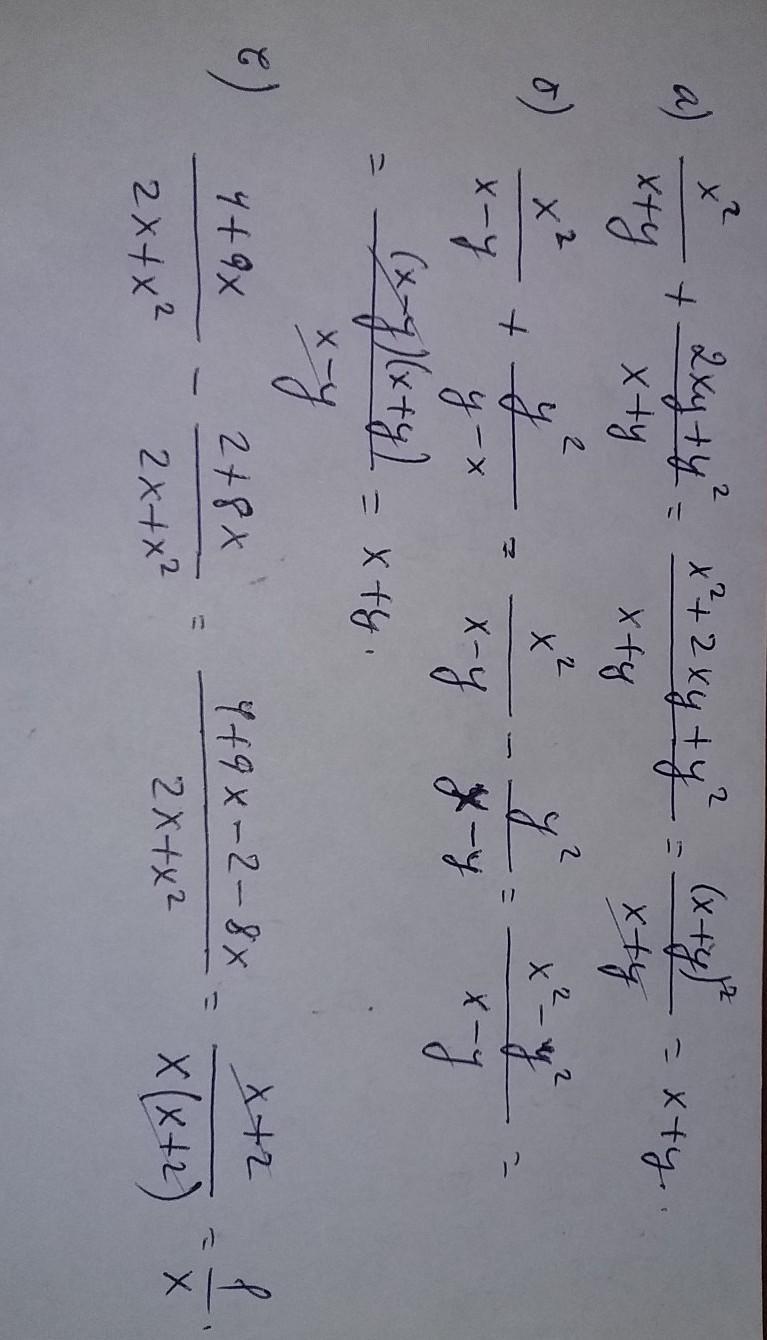 а) x²/(x+y) + (2xy+y²)/(x+y) = (x²+2xy+y²)/(x+y) = (x+y)²/(x+y) = x+y.
б) x²/(x-y) + y²/(y-x) = x²/(x-y) - y²/(x-y) = (x²-y²)/(x-y) =
= (x-y)(x+y)/(x-y) = x+y.
в) (4+9x)/(2x+x²) - (2+8x)/(2x+x²) = (4+9x-2-8x)/(2x+x²) = (x+2)/(x(x+2)) = 1/x.